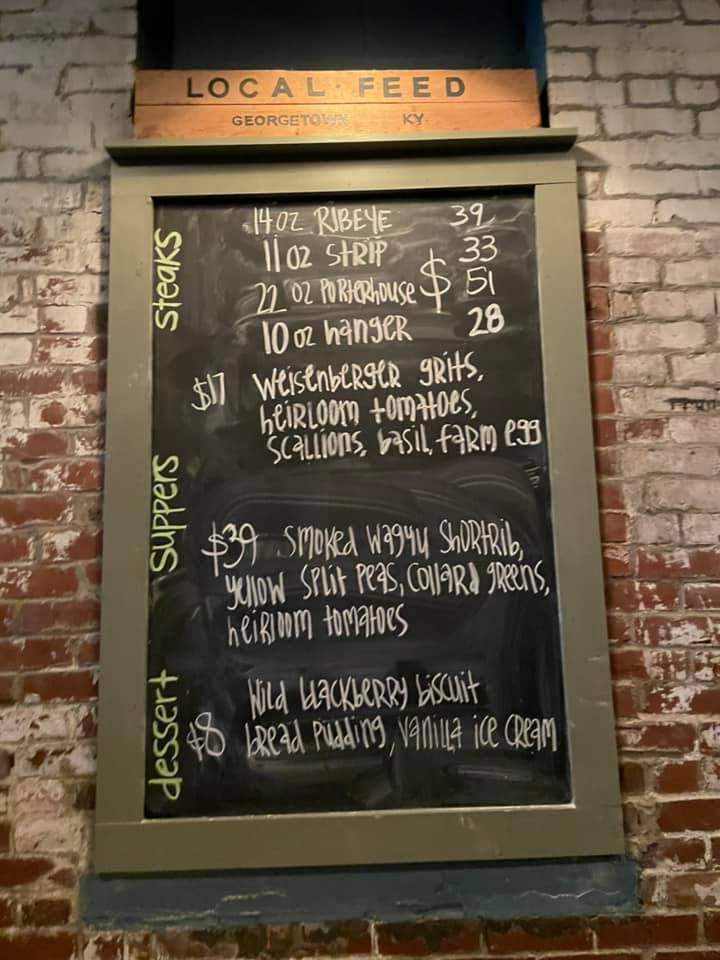 LOCAL · FEED
GEORGETOWN KY
steaks
14 oz RIBEYE 39
11 oz STRIP 33
22 oz PORTERHOUSE $ 51
10 oz hanger 28
suppers
$17 Weisenberger grits,
heirloom tomatoes,
scallions, basil, farm egg
$39 smoked wagyu shortrib,
yellow split peas, collard greens,
heirloom tomatoes
dessert
Wild blackberry biscuit
$8 bread pudding, vanilla ice cream